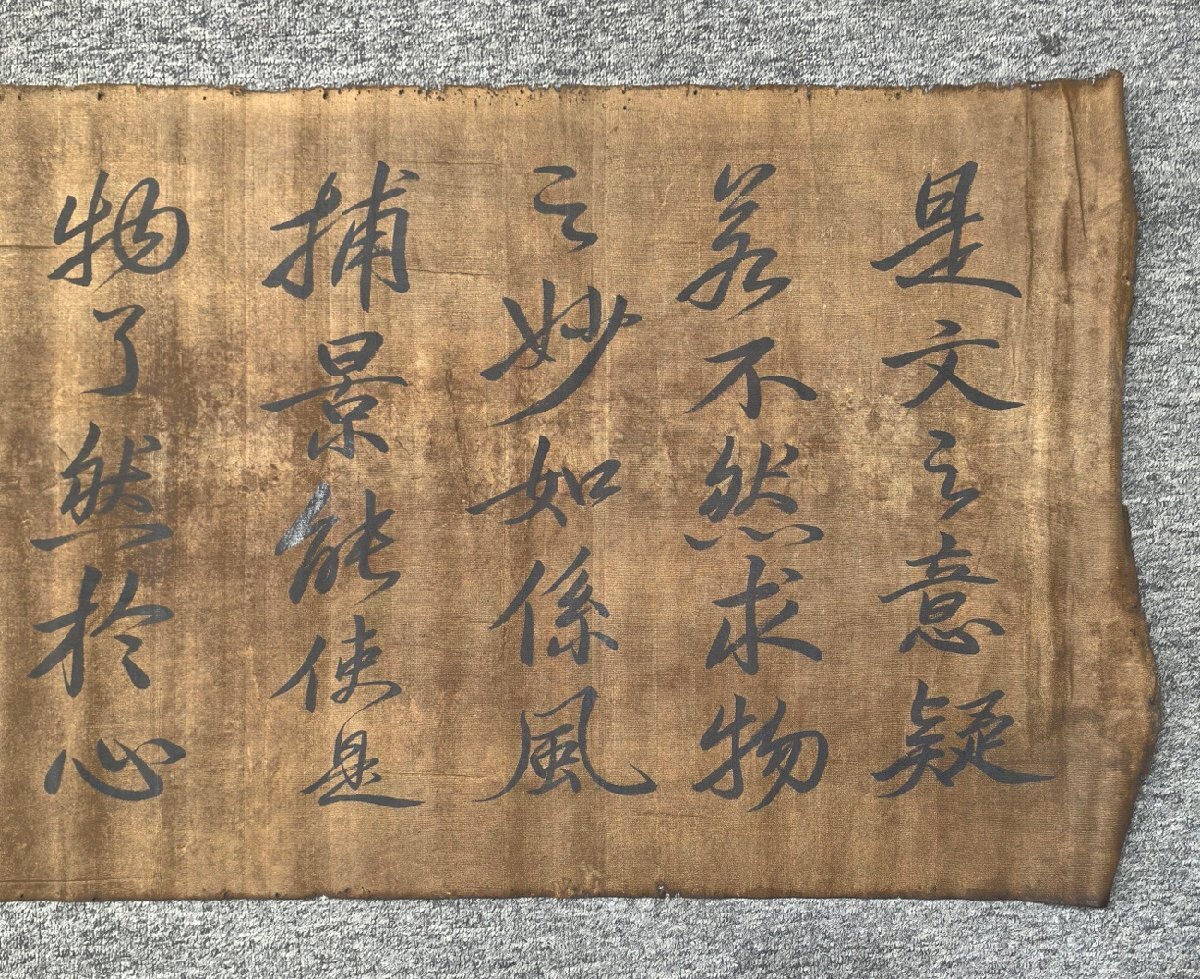 是文之意疑
若不然求物
之妙如係風
捕景能使是
物了然於心